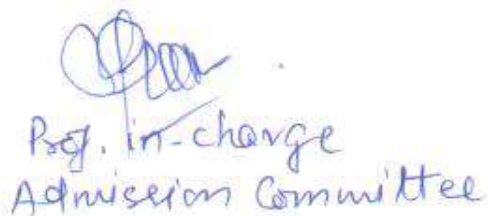 Prof. in-charge
Admission Committee